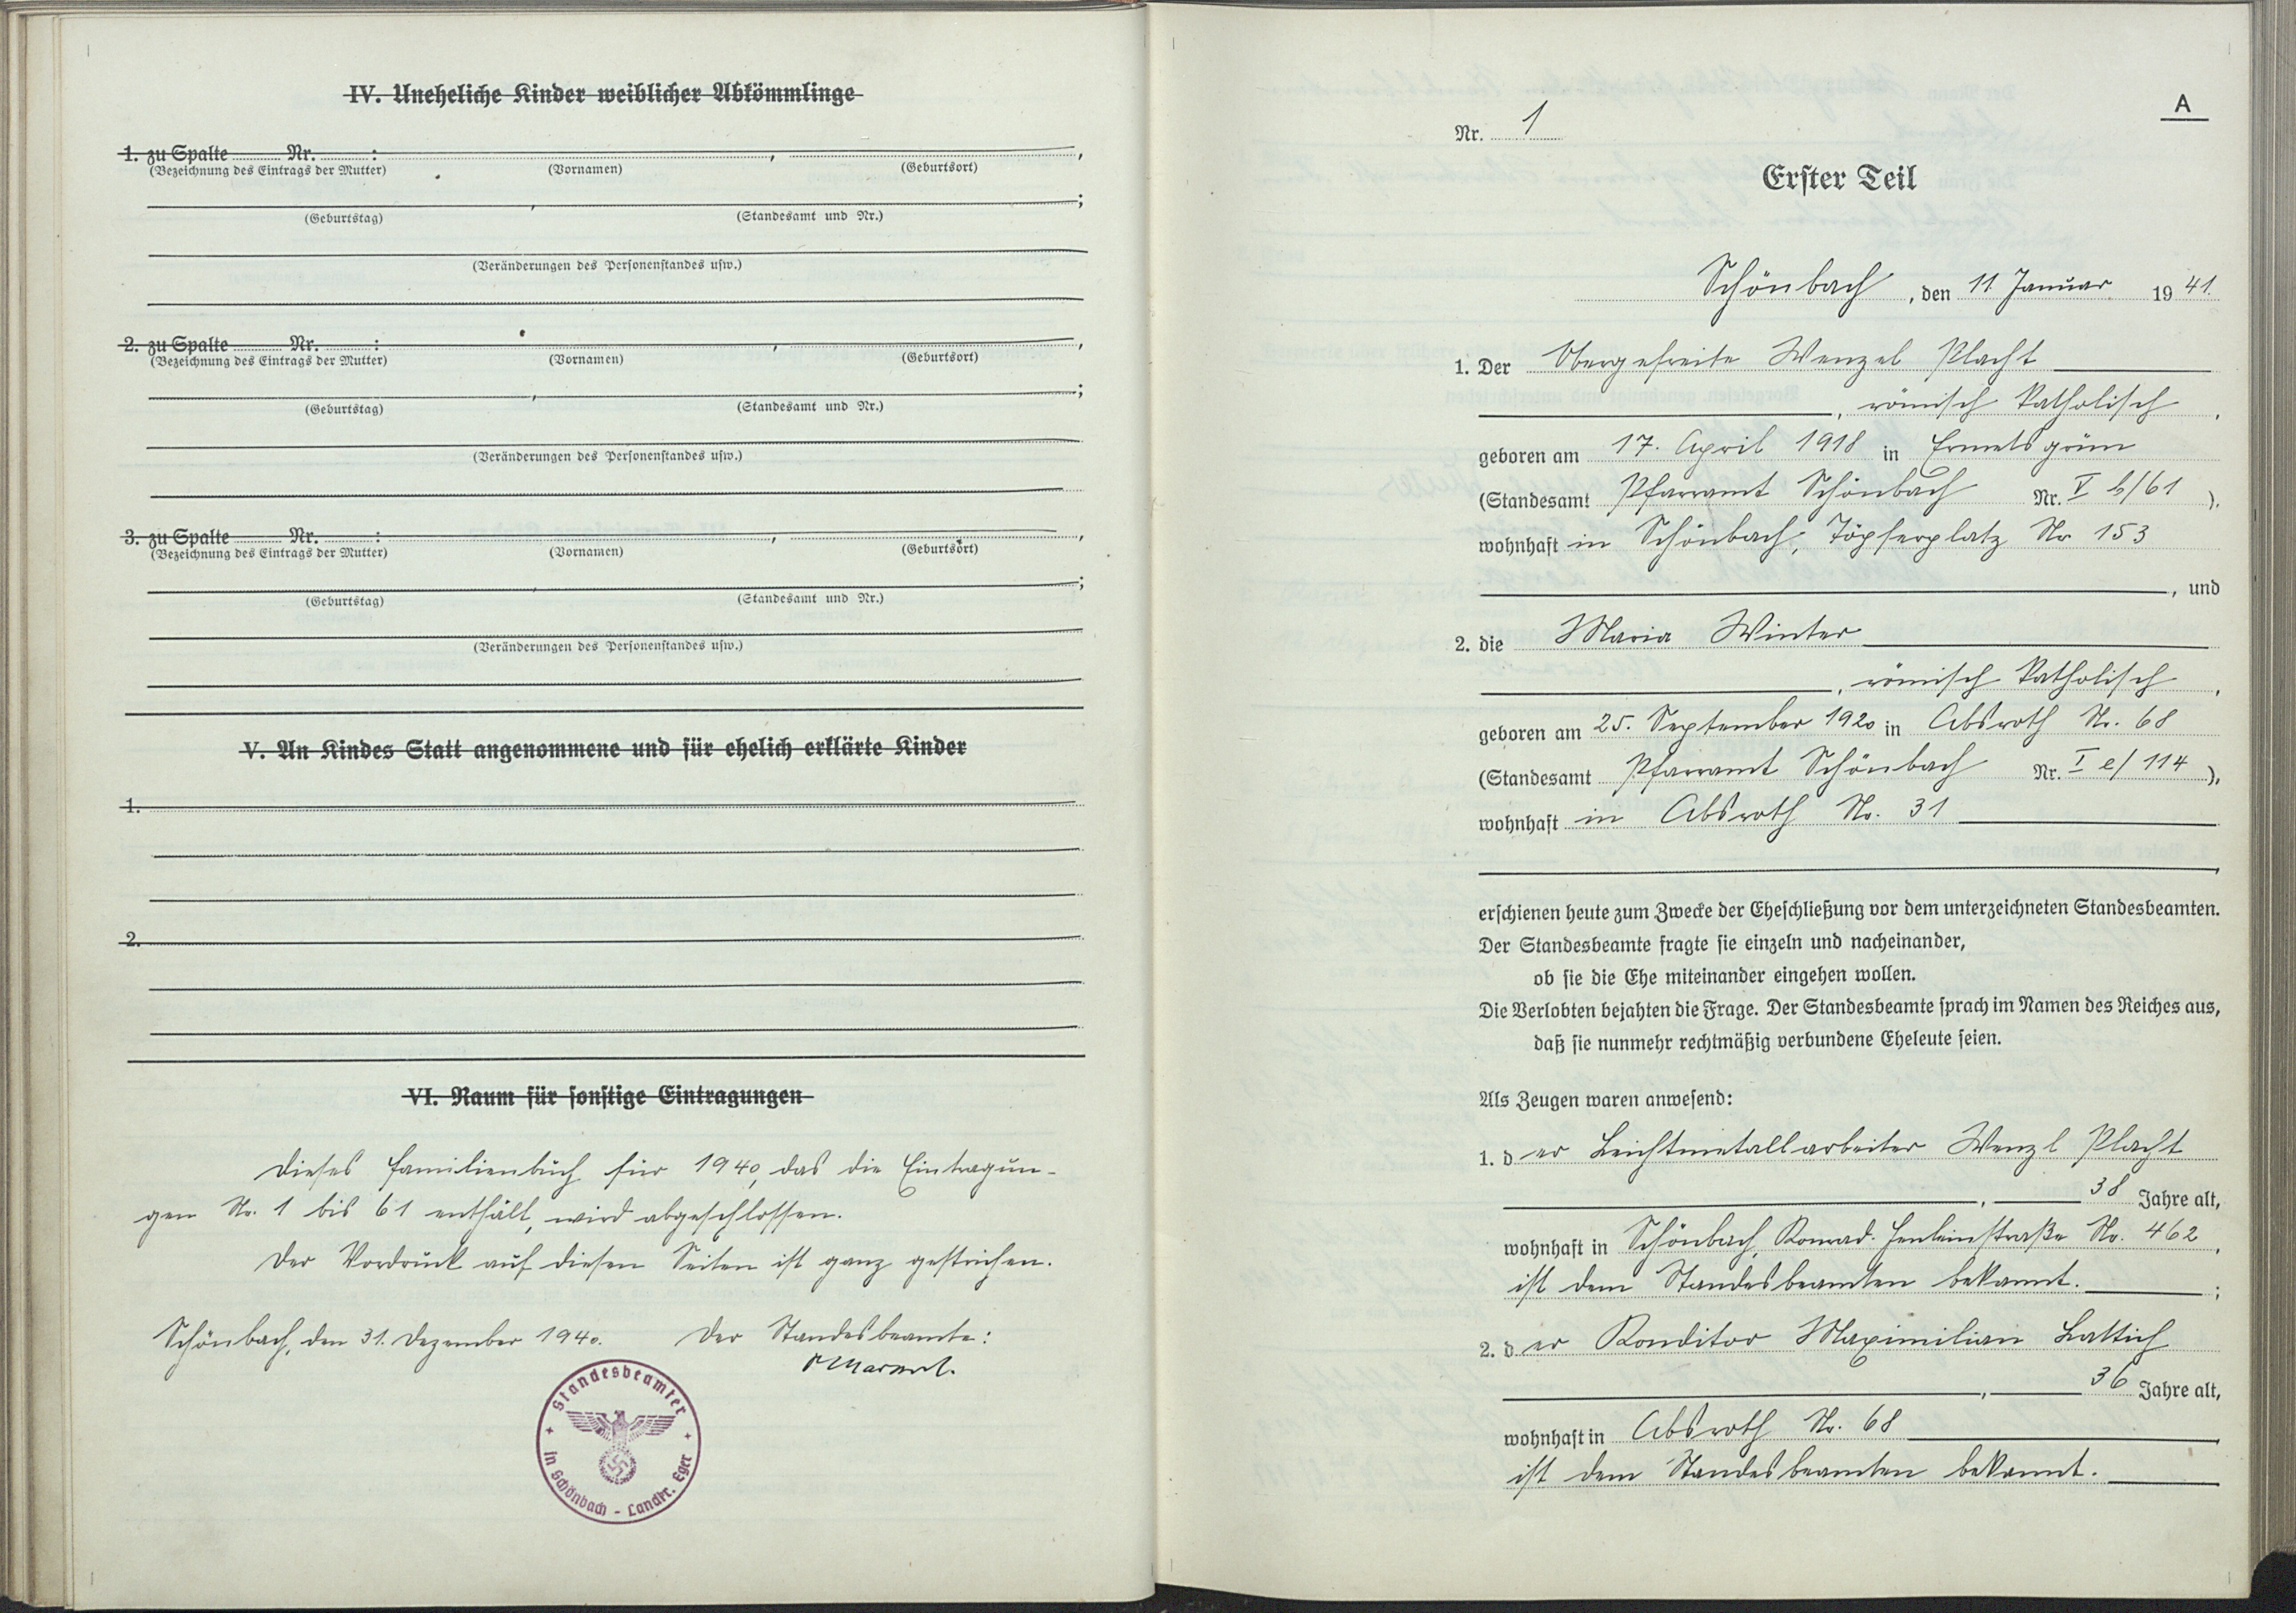 IV. Uneheliche Kinder weiblicher Abkömmlinge
1. zu Spalte Nr. : , ,
(Bezeichnung des Eintrags der Mutter) (Vornamen) (Geburtsort)
, ;
(Geburtstag) (Standesamt und Nr.)
(Veränderungen des Personenstandes usw.)
2. zu Spalte Nr. : , ,
(Bezeichnung des Eintrags der Mutter) (Vornamen) (Geburtsort)
, ;
(Geburtstag) (Standesamt und Nr.)
(Veränderungen des Personenstandes usw.)
3. zu Spalte Nr. : , ,
(Bezeichnung des Eintrags der Mutter) (Vornamen) (Geburtsort)
, ;
(Geburtstag) (Standesamt und Nr.)
(Veränderungen des Personenstandes usw.)
V. An Kindes Statt angenommene und für ehelich erklärte Kinder
1.
2.
VI. Raum für sonstige Eintragungen
Dieses Familienbuch für 1940, das die Eintragun-
gen Nr. 1 bis 61 enthält, wird abgeschlossen.
Der Vordruck auf diesen Seiten ist ganz gestrichen.
Schönbach, den 31. Dezember 1940. Der Standesbeamte:
Standesbeamter
in Schönbach - Landkr. Eger
A
Nr. 1
Erster Teil
Schönbach, den 11. Januar 1941.
1. Der Obergefreite Wenzel Placht
, römisch katholisch,
geboren am 17. April 1918 in Ermetsgrün
(Standesamt Pfarramt Schönbach Nr. V b/61),
wohnhaft in Schönbach, Töpferplatz Nr 153
, und
2. die Maria Winter
, römisch katholisch,
geboren am 25. September 1920 in Absroth Nr. 68
(Standesamt Pfarramt Schönbach Nr. I e/114),
wohnhaft in Absroth Nr. 31
,
erschienen heute zum Zwecke der Eheschließung vor dem unterzeichneten Standesbeamten.
Der Standesbeamte fragte sie einzeln und nacheinander,
ob sie die Ehe miteinander eingehen wollen.
Die Verlobten bejahten die Frage. Der Standesbeamte sprach im Namen des Reiches aus,
daß sie nunmehr rechtmäßig verbundene Eheleute seien.
Als Zeugen waren anwesend:
1. der Leichtmetallarbeiter Wenzl Placht
, 38 Jahre alt,
wohnhaft in Schönbach, Konrad-Henleinstraße Nr. 462,
ist dem Standesbeamten bekannt. ;
2. der Konditor Maximilian Lattich
, 36 Jahre alt,
wohnhaft in Absroth Nr. 68,
ist dem Standesbeamten bekannt.